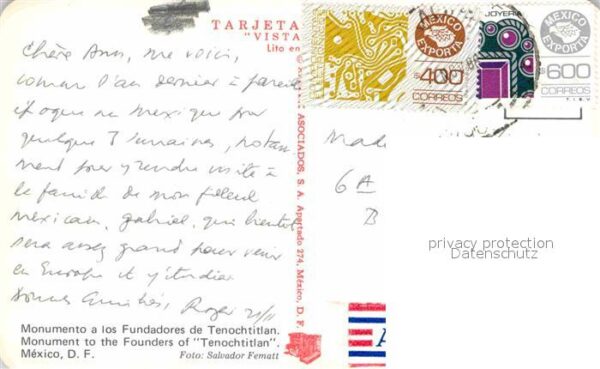 TARJETA
"VISTA
Lito en
Chère Ann, me voici,
comme l'an dernier à pareille
époque au Mexique pour
quelques 3 semaines, notam
ment pour y rendre visite à
la famille de mon filleul
mexicain, gabriel, qui bientôt
sera assez grand pour venir
en Europe et y étudier
Bonnes Amitiés, Roger 21/11
Monumento a los Fundadores de Tenochtitlan.
Monument to the Founders of "Tenochtitlan".
México, D. F.
Foto: Salvador Fematt
ASOCIADOS, S. A. Apartado 274, México, D. F.
MEXICO
EXPORTA
$400
CORREOS
JOYERIA
MEXICO
EXPORTA
$600
CORREOS
T.I.E.V.
6 A
B
privacy protection
Datenschutz